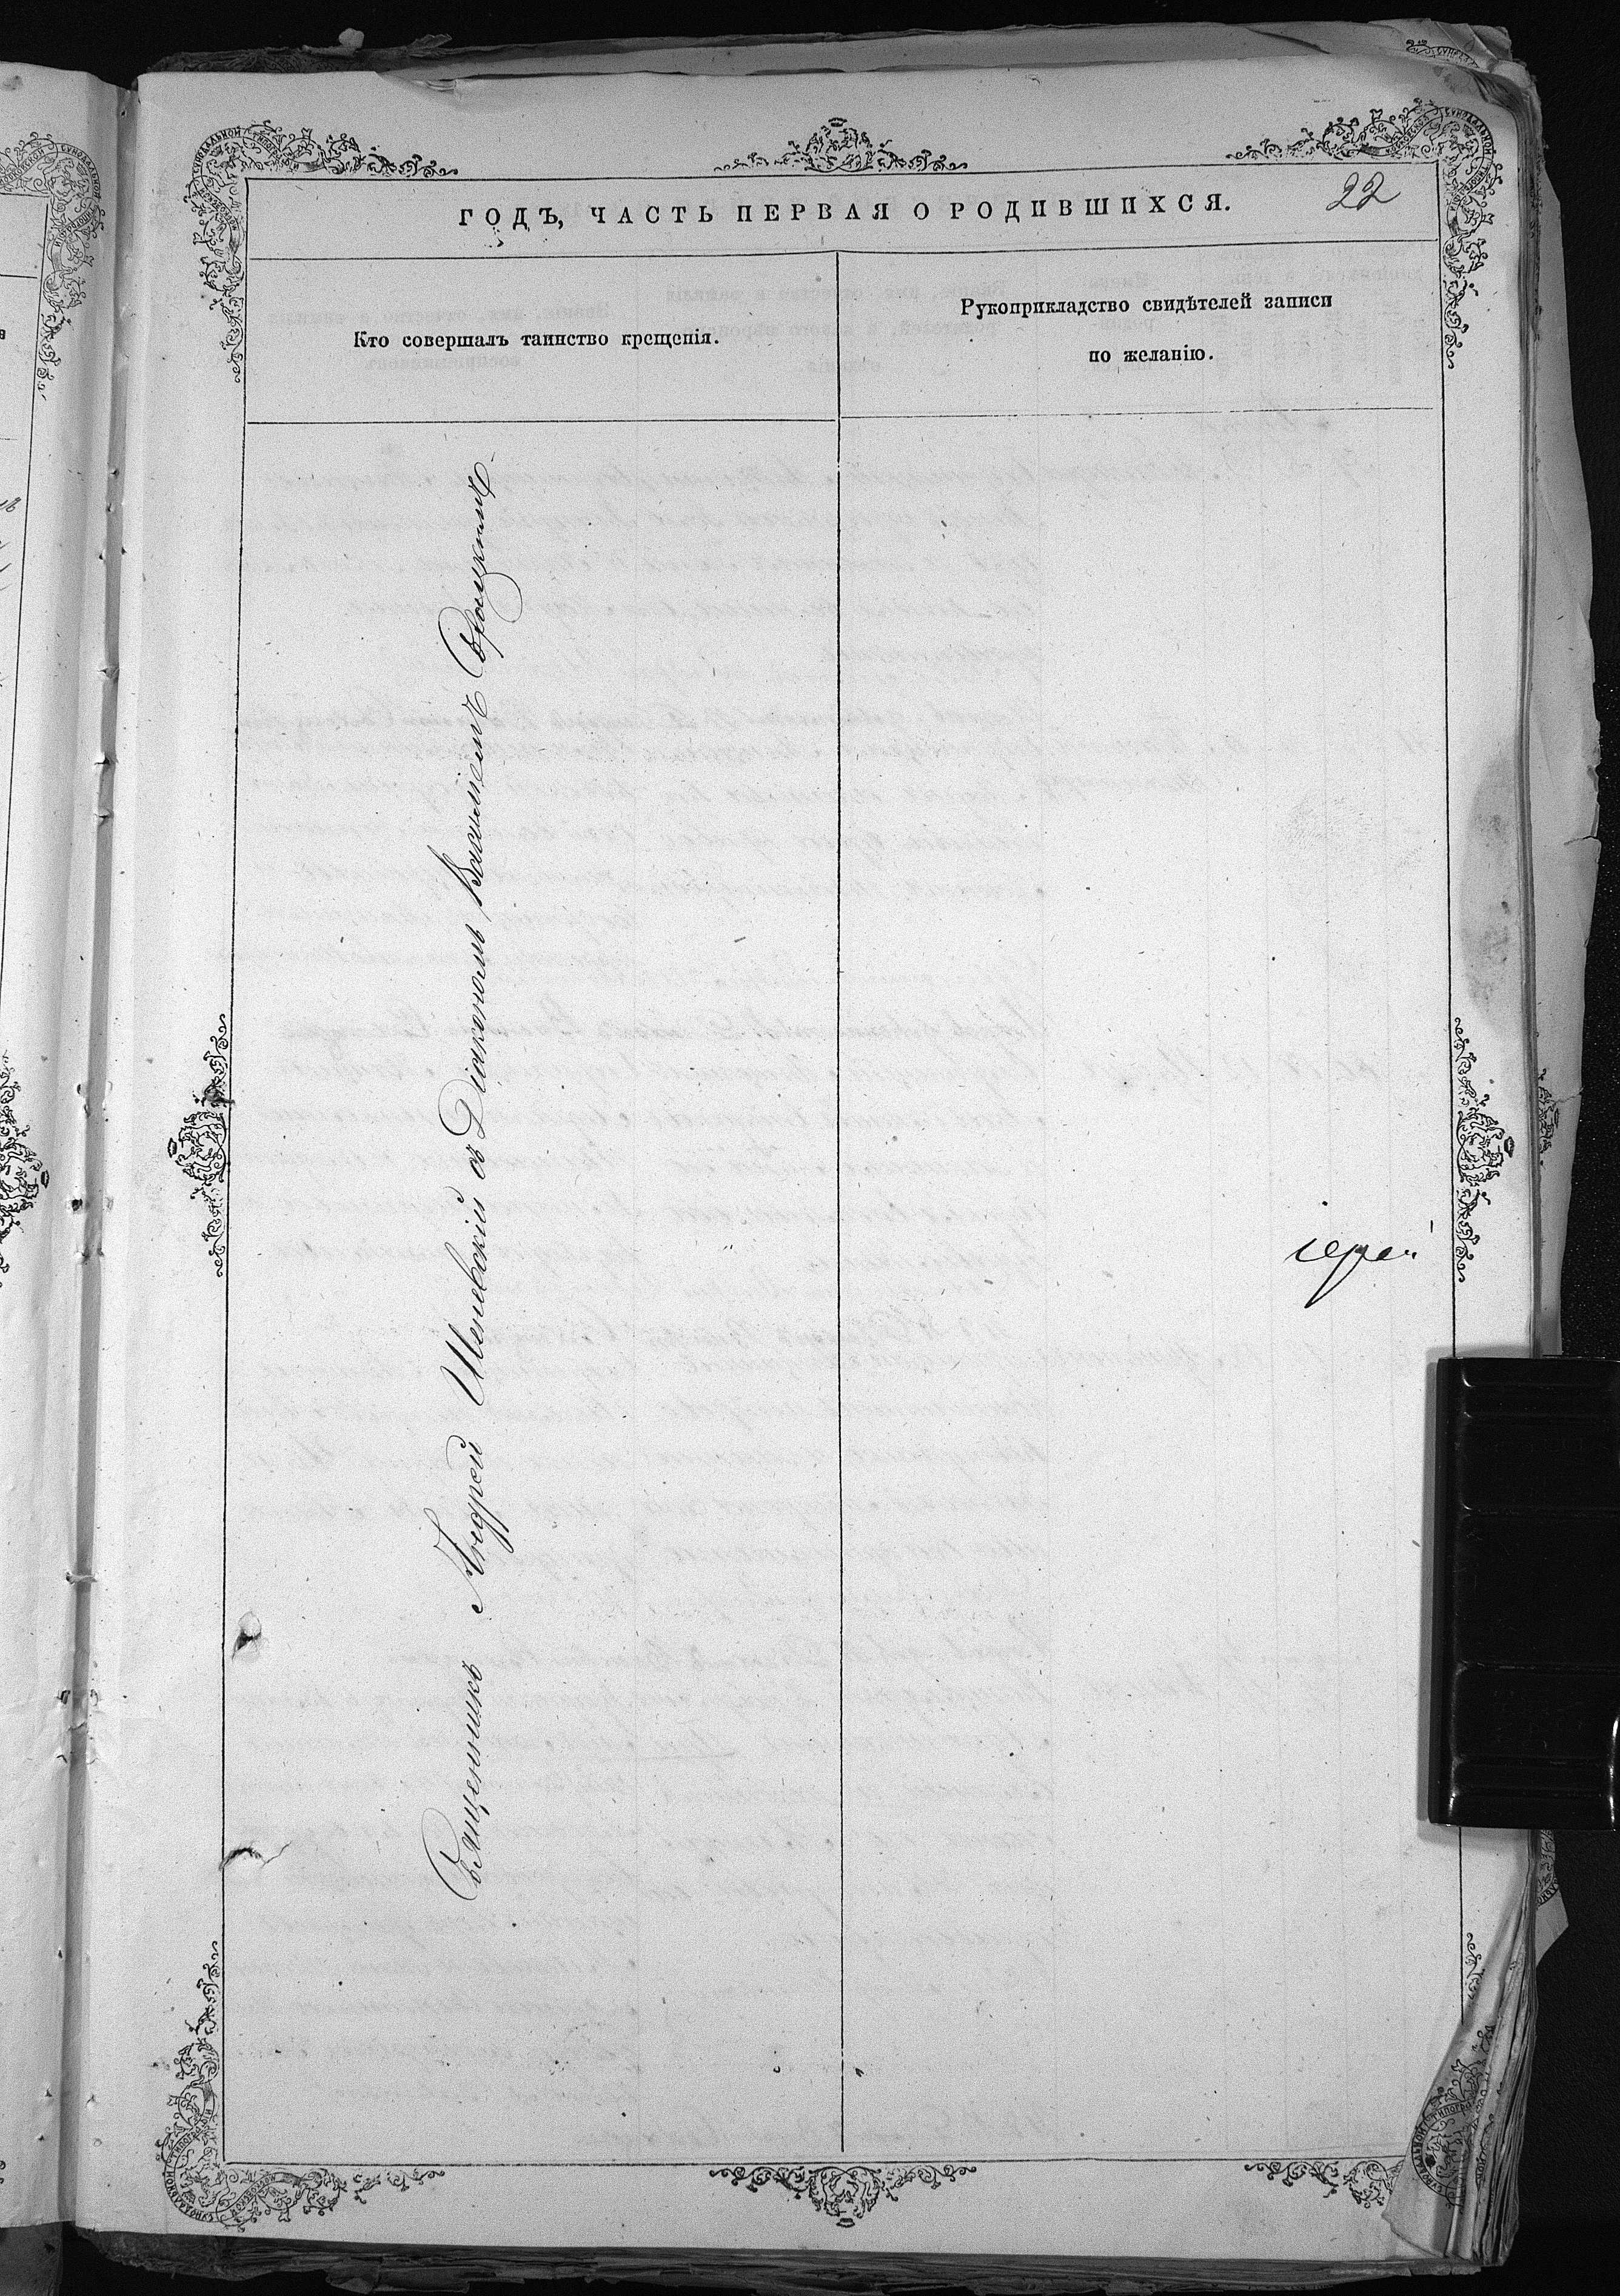 ГОДЪ, ЧАСТЬ ПЕРВАЯ О РОДИВШИХСЯ.
22
Кто совершалъ таинство крещенія.
Рукоприкладство свидѣтелей записи
по желанію.
Священникъ Андрей съ Діакономъ Василіемъ
іерей